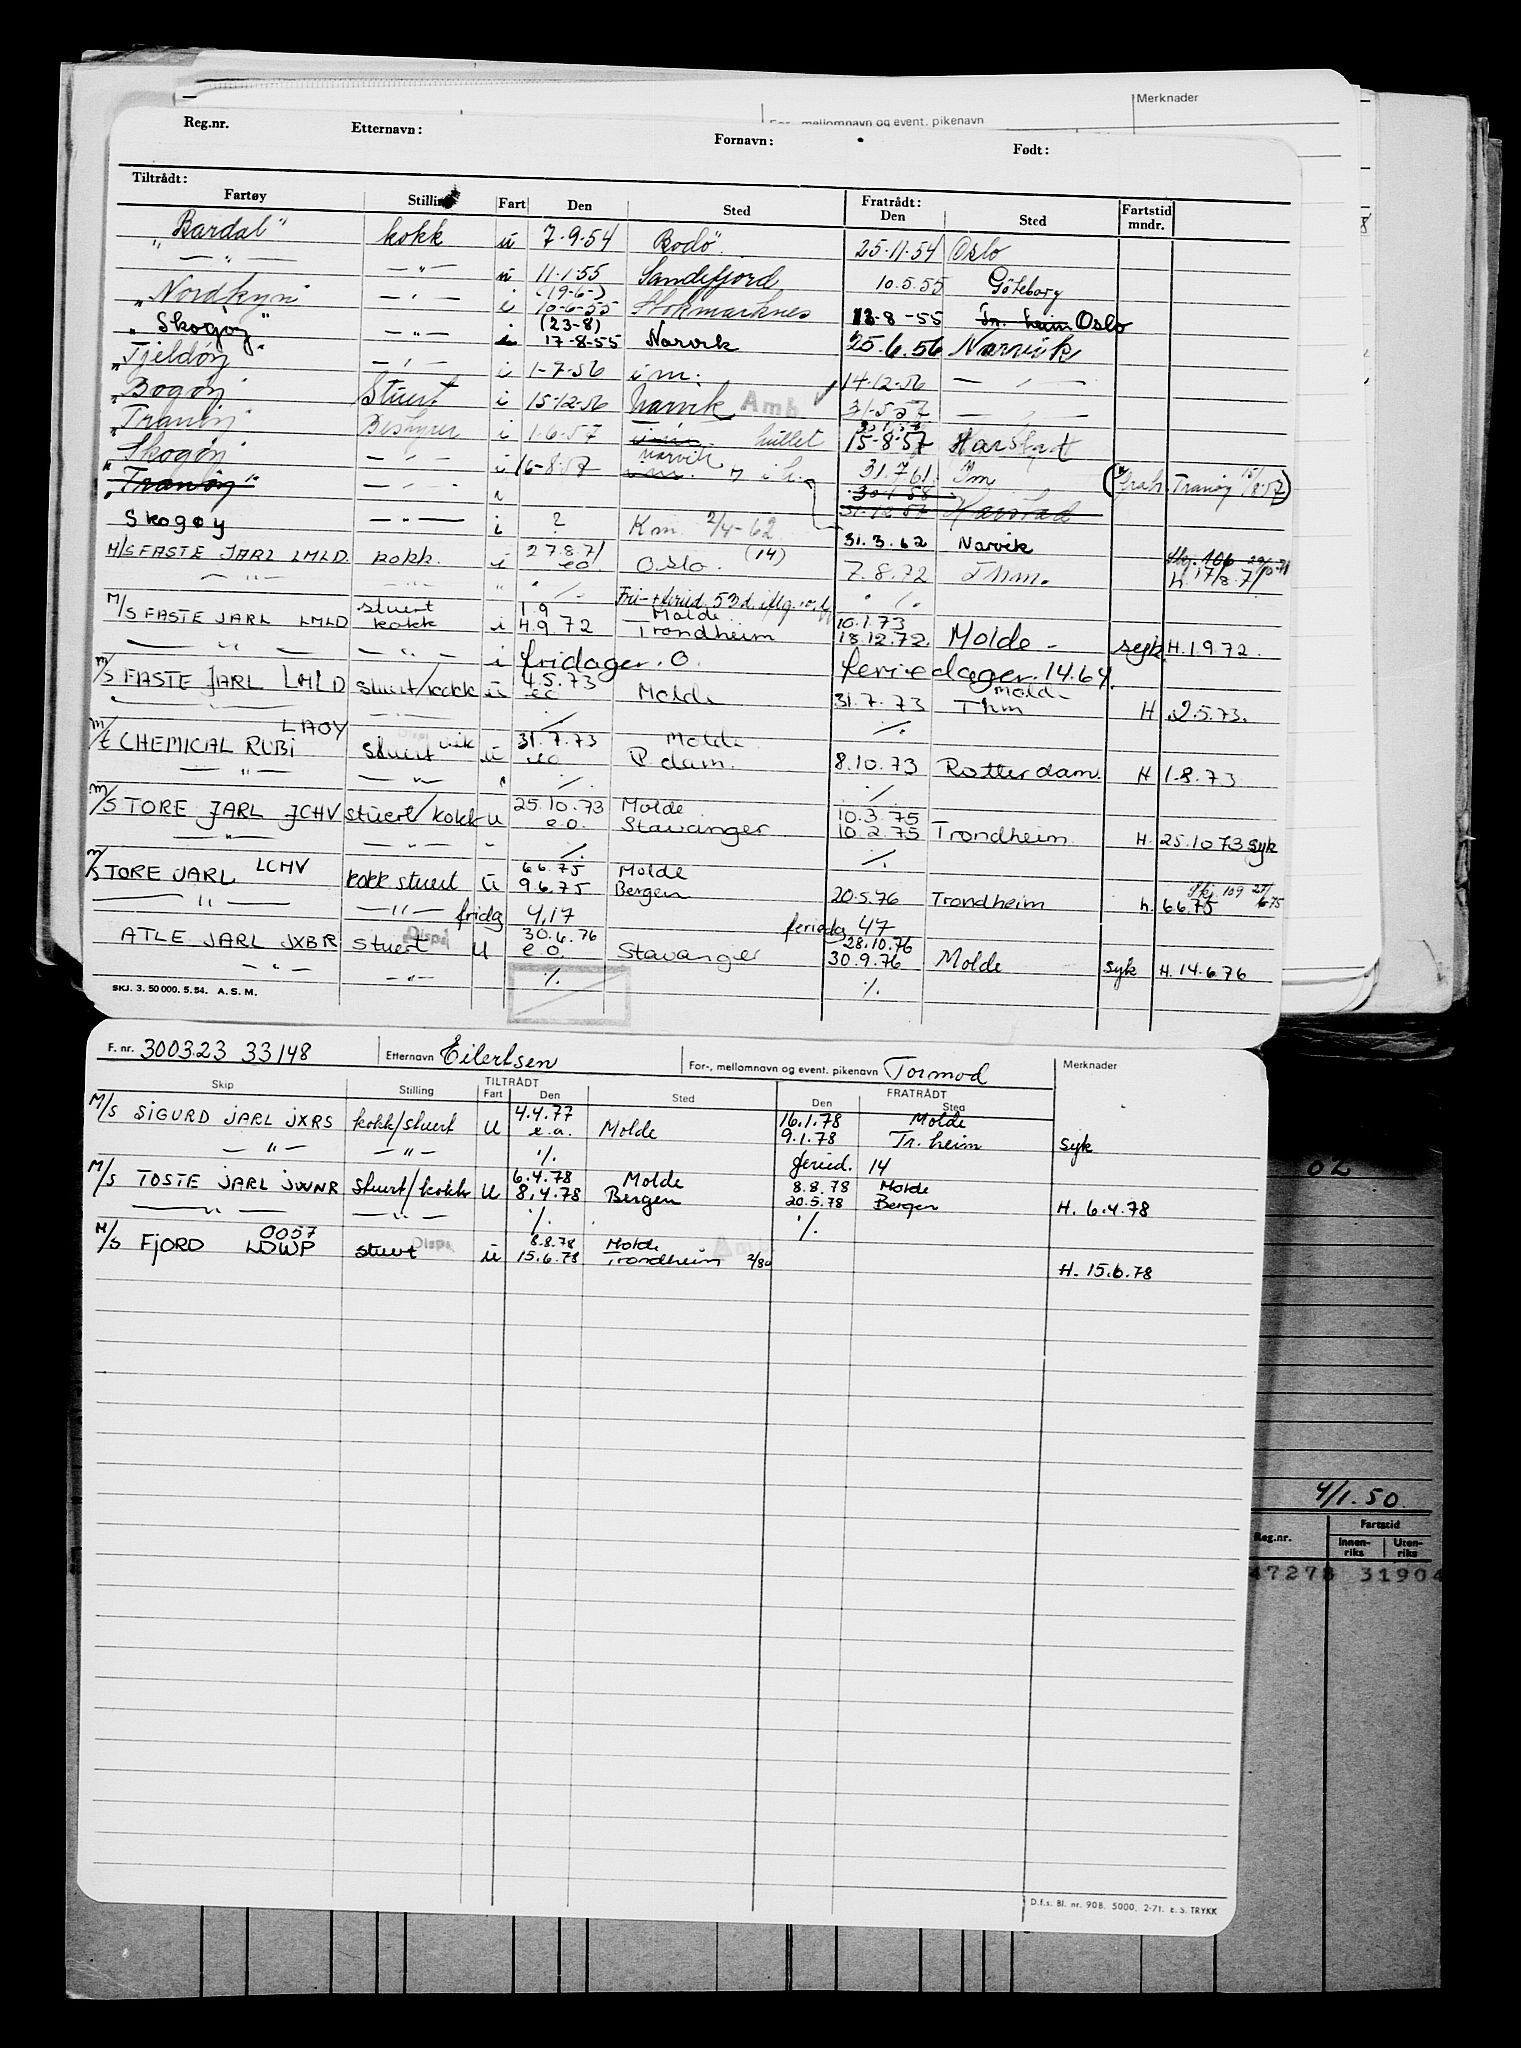 Merknader
For-, mellomnavn og event. pikenavn
Reg.nr. Etternavn: Fornavn: Født:
Tiltrådt: Fratrådt:
Fartøy Stilling Fart Den Sted Den Sted Fartstid mndr.
"Bardal" kokk u 7-9-54 Bodø 25-11-54 Oslo
— " — — " — u 11-1-55 Sandefjord 10.5.55 Göteborg
(19-6-)
"Nordkyn" — " — i 10-6-55 Stokmarknes 13-8-55 Tr. heim Oslo
(23-8)
"Skogøy" — " — i 17-8-55 Narvik 25.6.56 Narvik
"Tjeldøy" — " — i 1-7-56 i m. 14-12-56 — " —
"Bogøy" Stuert i 15-12-56 Narvik Amb 31-5-57 — " —
"Tranøy" Bestyrer i 1-6-57 hullet 15-8-57 Harstad
Narvik
"Skogøy" — " — i 16-8-57 31.7.61 Im (fratr. Tranøy 15/8-57)
"Tranøy" — " — i 30/1-58
31.12.57 Harstad
Skogøy — " — i ? Km 2/4-62 31.3.62 Narvik
(14)
M/S FASTE JARL LMLD. kokk. i 27.8.71 eo. Oslo. 7.8.72 Thm. h. 17/8.71
— " — " " ./. ./.
M/S FASTE JARL LMLD stuert kokk i 1.9 4.9.72 Molde Trondheim 10.1.73 18.12.72 Molde - syk H.1.9.72.
— " — — " — i fridager. 0. feriedager. 14.64.
M/S FASTE JARL LMLD stuert/kokk u 4.5.73 eo Molde 31.7.73 Molde Thm H 2.5.73.
— " — — " — ./. ./.
LAOY
M/T CHEMICAL RUBI stuert u 31.7.73 eo Molde R.dam. 8.10.73 Rotterdam. H 1.8.73
— " — — " — " ./. ./.
M/S TORE JARL JCHV stuert/kokk u 25.10.73 e.o. Molde Stavanger 10.3.75 10.2.75 Trondheim H. 25.10.73 syk
— " — — " — " ./. ./.
M/S TORE JARL LCHV kokk stuert u 6.6.75 9.6.75 Molde Bergen 20.5.76 Trondheim h. 6.6.75 Skj 109 27/6-75
— " — — " — fridg 4,17 feriedg 47
ATLE JARL JXBR stuert Disp U 30.6.76 e.o. Stavanger 28.10.76 30.9.76 Molde syk H. 14.6.76
— " — — " — ./. ./.
SKJ. 3. 50 000. 5. 54. A. S. M.
F. nr. 300323 33148 Etternavn Eilertsen For-, mellomnavn og event. pikenavn Tormod Merknader
TILTRÅDT FRATRÅDT
Skip Stilling Fart Den Sted Den Sted
M/S SIGURD JARL JXRS kokk/stuert U 4.4.77 e.o. Molde 16.1.78 9.1.78 Molde Tr. heim syk
— " — — " — ./. feried. 14
M/S TOSTE JARL JWNR stuert/kokk U 6.4.78 8.4.78 Molde Bergen 8.8.78 20.5.78 Molde Bergen H. 6.4.78
— " — — " — ./. ./.
0057
M/S FJORD LDWP stuert Disp. u 8.8.78 15.6.78 Molde Trondheim 2/80 Amb H. 15.6.78
02
4/1.50.
Reg.nr. Fartstid
Innenriks Utenriks
47278 31904
D.f.s. Bl. nr. 90B. 5000. 2-71. E. S. TRYKK